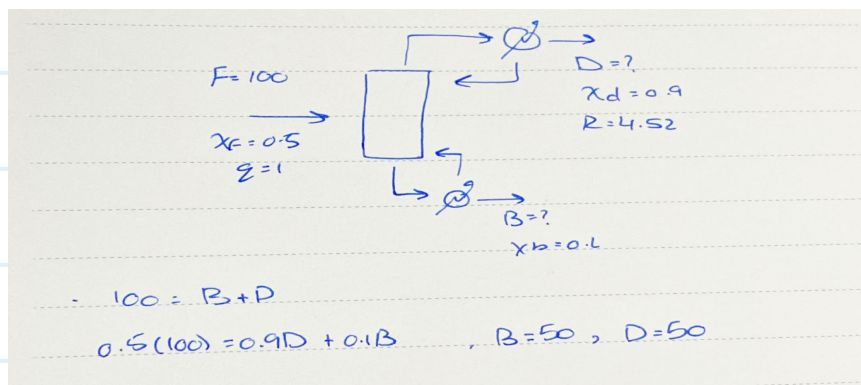 F= 100
xF = 0.5
q = 1
D = ?
xd = 0.9
R = 4.52
B = ?
xb = 0.1
100 = B + D
0.5(100) = 0.9D + 0.1B , B=50 , D=50